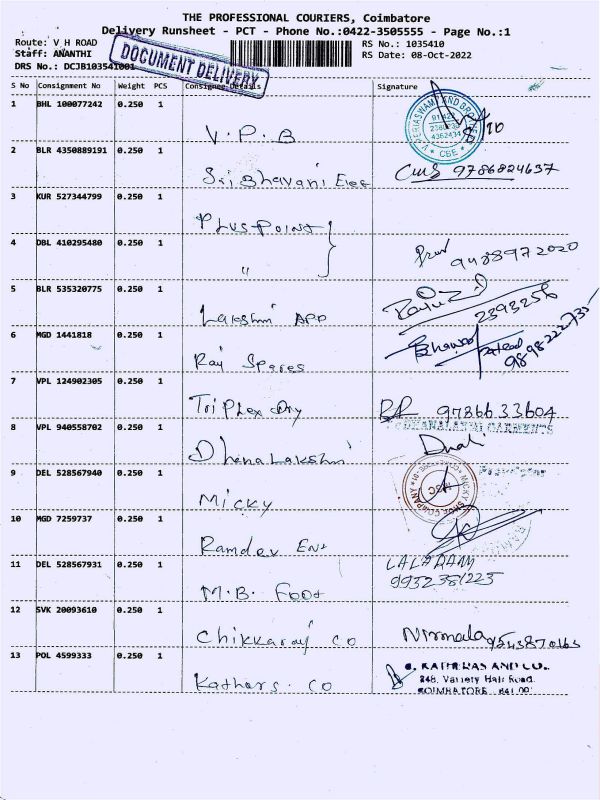 THE PROFESSIONAL COURIERS, Coimbatore
Delivery Runsheet - PCT - Phone No.:0422-3505555 - Page No.:1
Route: V H ROAD RS No.: 1035410
Staff: ANANTHI RS Date: 08-Oct-2022
DRS No.: DCJB103541001
DOCUMENT DELIVERY
S No Consignment No Weight PCS Consignee Details Signature
1 BHL 100077242 0.250 1
V.P.B
2 BLR 4350889191 0.250 1
Sri Bhavani Elec 9786824637
3 KUR 527344799 0.250 1
Plus Point
4 DBL 410295480 0.250 1
" 9488972020
5 BLR 535320775 0.250 1
Lakshmi APP 2393256
6 MGD 1441818 0.250 1
Raj Spares
7 VPL 124902305 0.250 1
Triplex Dry 9786633604
DHANALAXMI GARMENTS
8 VPL 940558702 0.250 1
Dhanalakshmi
9 DEL 528567940 0.250 1
Micky
10 MGD 7259737 0.250 1
Ramdev Ent
11 DEL 528567931 0.250 1
LALARAM
9932381223
M.B. Foot
12 SVK 20093610 0.250 1
Chikkaraj Co Nirmala
13 POL 4599333 0.250 1
Kathars. Co
248, Variety Hall Road
COIMBATORE